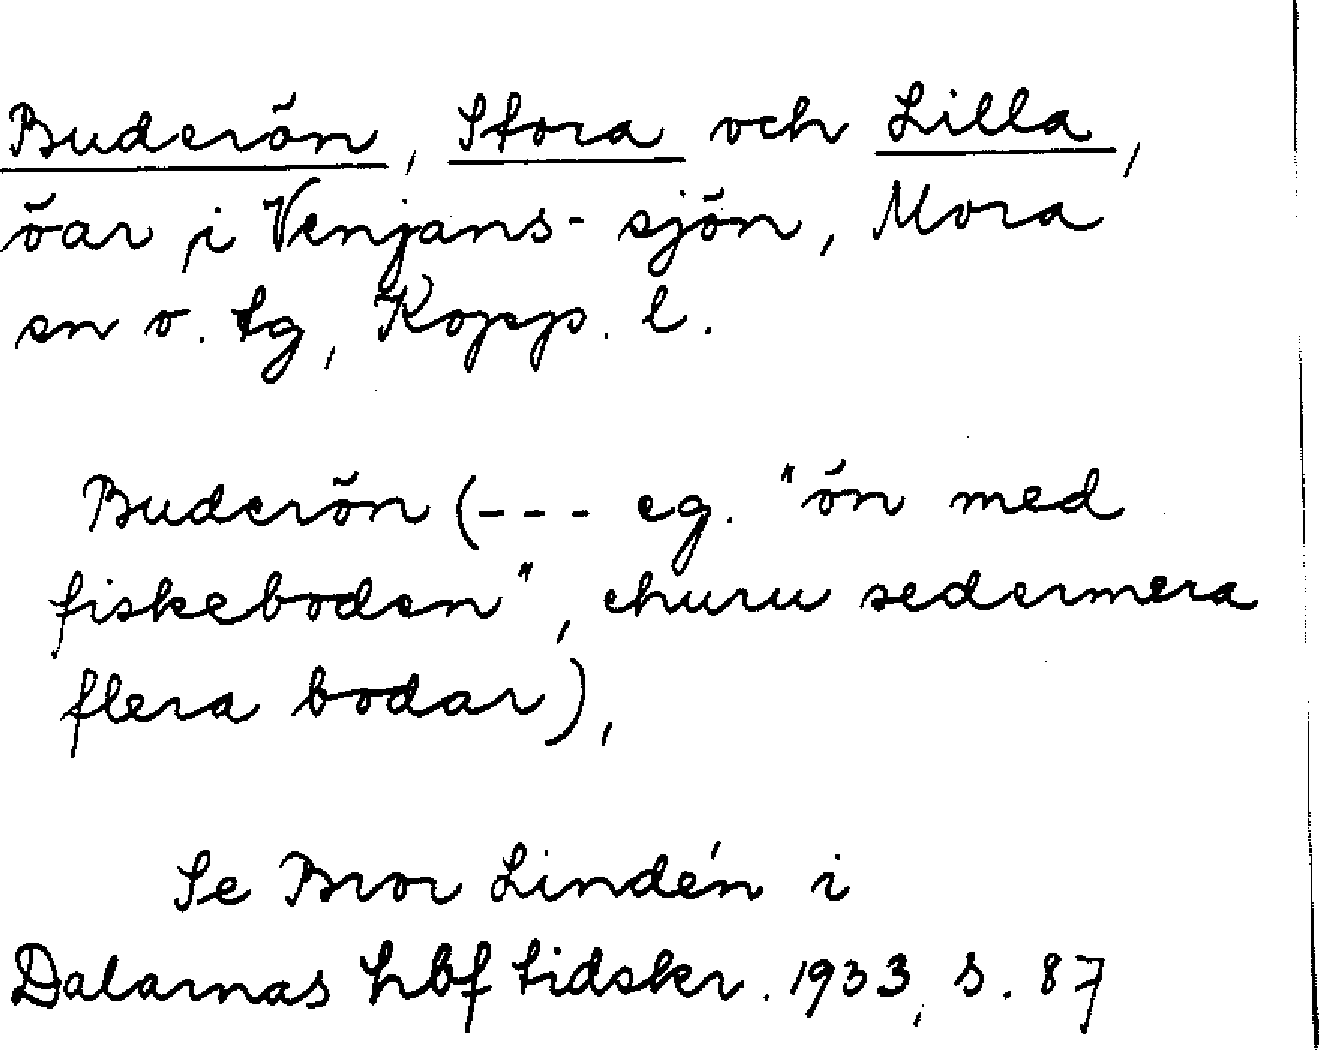 Buderön, Stora och Lilla,
öar i Venjans-sjön, Mora
sn o. tg, Kopp. l.
Buderön (--- eg. "ön med
fiskeboden", ehuru sedermera
flera bodar),
Se Bror Lindén i
Dalarnas hbf tidskr. 1933, s. 87